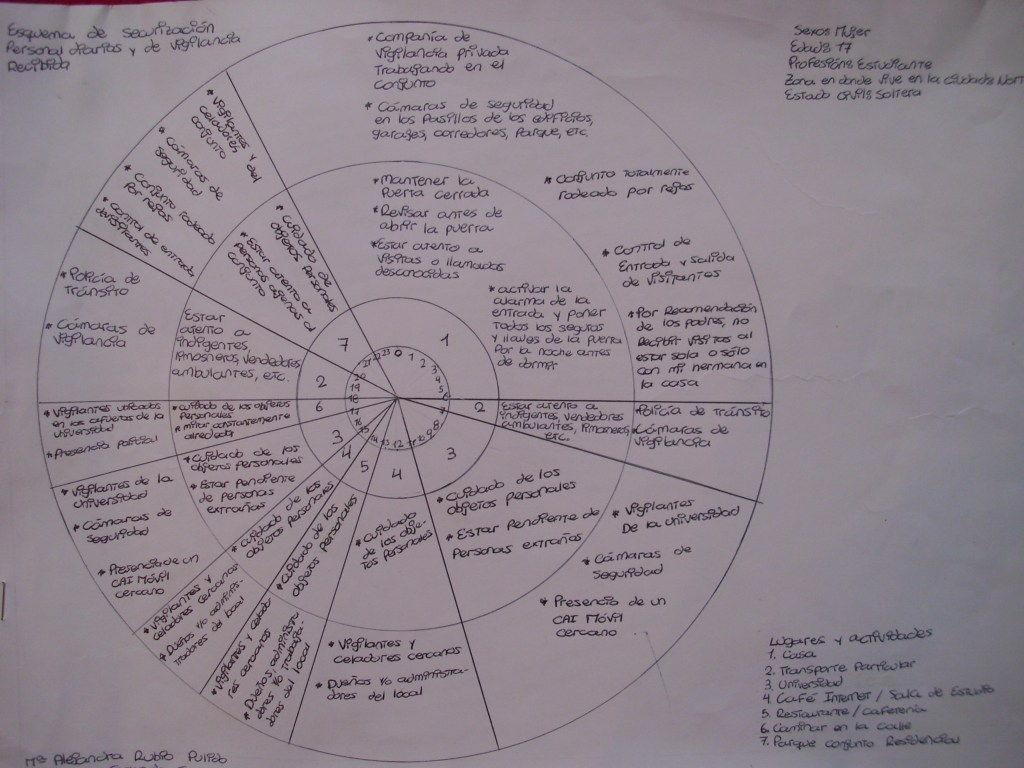 Esquema de securización
Personal diarios y de Vigilancia
Recibida
Sexos Mujer
Edads 17
Profesións Estudiante
Zona en donde vive en la ciudads Nort
Estado civils Soltera
* Compañía de
Vigilancia privada
Trabajando en el
conjunto
* Cámaras de seguridad
en los pasillos de los edificios,
garajes, corredores, parque, etc.
* conjunto totalmente
rodeado por rejas
* Control de
Entrada y salida
de visitantes
* Por Recomendación
de los padres, no
Recibir visitas al
estar sola o sólo
con mi hermana en
la casa
* Mantener la
Puerta cerrada
* Revisar antes de
abrir la puerra
* Estar atento a
visitas o llamadas
desconocidas
* activar la
alarma de la
entrada y poner
Todos los seguros
y llaves de la puerta
Por la noche antes
de dormir
1
* Vigilantes y
celadores del
conjunto
* Cámaras de
seguridad
* Conjunto rodeado
por rejas
* control de entrada
de visitantes
* cuidado de
objetos personales
* Estar atento a
personas ajenas al
conjunto
7
* Policía de
Tránsito
* Cámaras de
Vigilancia
Estar
atento a
indigentes,
limosneros, vendedores
ambulantes, etc.
2
* Vigilantes ubicados
en las afueras de la
universidad
* Presencia policial
* cuidado de los objetos
Personales
* mirar constantemente
alrededor
6
* Vigilantes de la
universidad
* Cámaras de
Seguridad
* Presencia de un
CAI MóVil
cercano
* cuidado de los
objetos personales
* Estar pendiente
de personas
extrañas
3
* Vigilantes y
celadores cercanos
* Dueños y/o adminis-
tradores del local
* cuidado de los
objetos personales
4
* Vigilantes y celado
res cercanos
* Dueños, administra
dores y/o trabaja-
dores del local
* cuidado de los
objetos personales
5
* Vigilantes y
celadores cercanos
* Dueños y/o administra-
dores del local
* Cuidado
de los obje-
tos personales
4
* Vigilantes
De la universidad
* Cámaras de
Seguridad
* Presencia de un
CAI MóVil
cercano
* Cuidado de los
objetos personales
* Estar Pendiente de
Personas extrañas
3
* Policía de Tránsito
* Cámaras de
Vigilancia
Estar atento a
indigentes, vendedores
ambulantes, limosneros,
etc.
2
0 1 2 3 4 5 6 7 8 9 10 11 12 13 14 15 16 17 18 19 20 21 22 23
Lugares y actividades
1. Casa
2. Transporte Particular
3. Universidad
4. Café Internet / Sala de Estudio
5. Restaurante / cafetería
6. Caminar en la Calle
7. Parque conjunto Residencial
Mª Alejandra Rubio Pulido